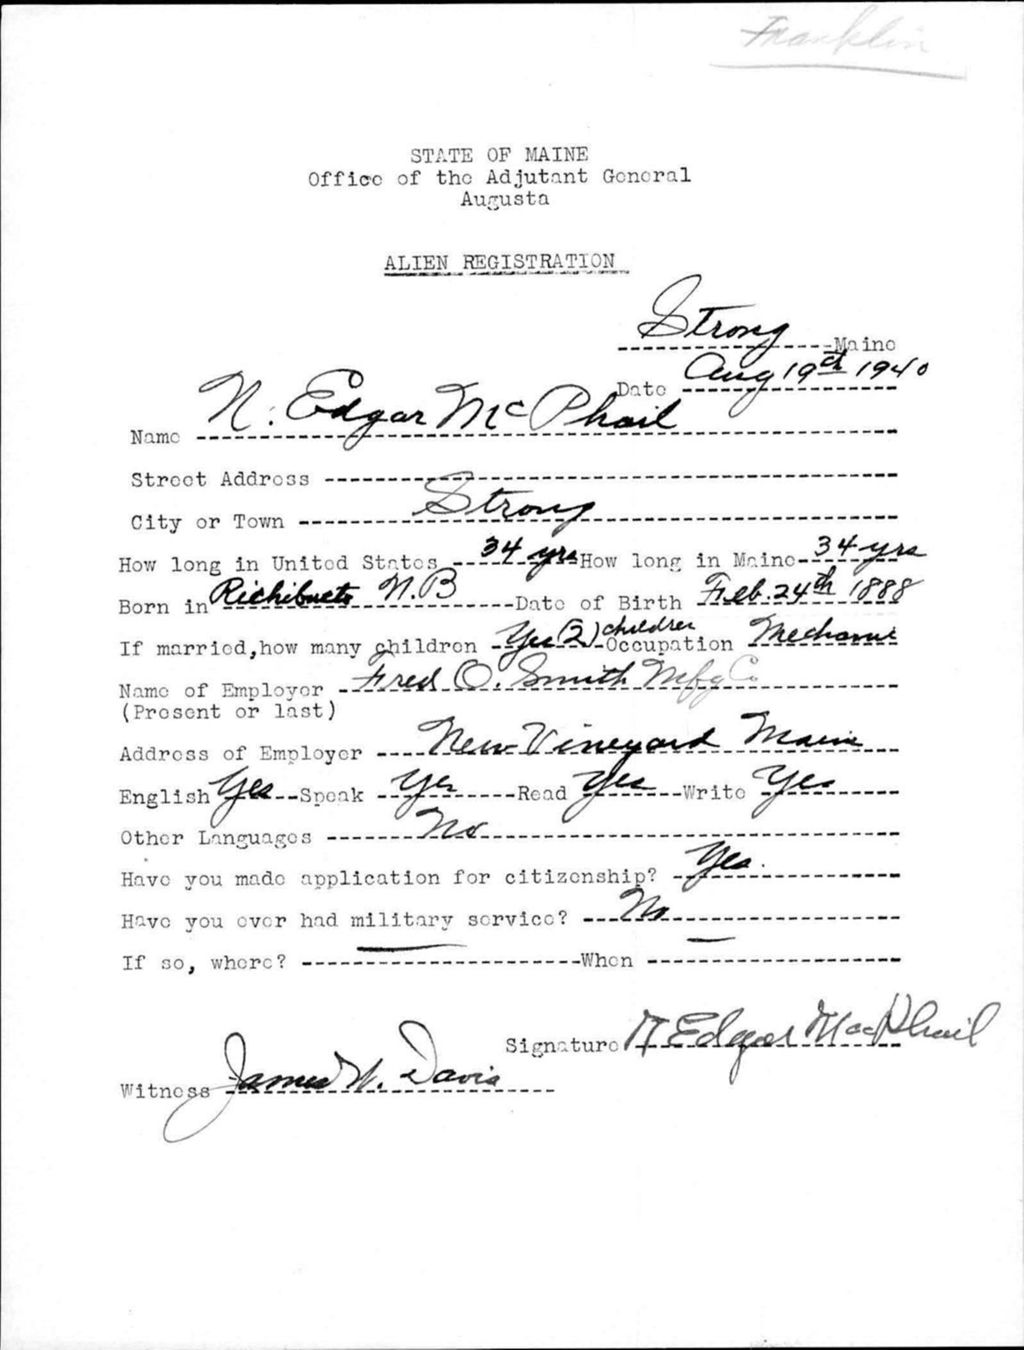 Franklin
STATE OF MAINE
Office of the Adjutant General
Augusta
ALIEN REGISTRATION
Strong Maine
Date Aug 19th 1940
Name N. Edgar McPhail
Street Address
City or Town Strong
How long in United States 34 yrs How long in Maine 34 yrs
Born in Richibucto N.B Date of Birth Feb. 24th 1888
If married, how many children Yes (2) children Occupation Mechanic
Name of Employer Fred O. Smith Mfg Co
(Present or last)
Address of Employer New Vineyard Maine
English Yes Speak Yes Read Yes Write Yes
Other Languages No
Have you made application for citizenship? Yes.
Have you ever had military service? No
If so, where? — When —
Signature N Edgar MacPhail
Witness James W. Davis